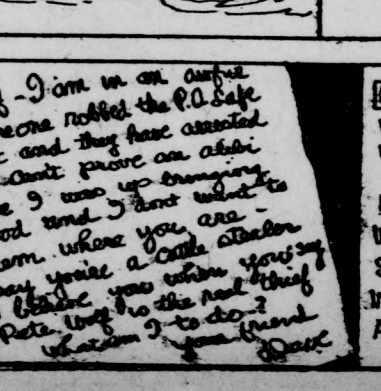 - I am in an awful
one robbed the P.O. Safe
and they have arrested
can't prove an alibi
I was up bringing
and I dont want to
em where you are -
say you're a cattle stealer
believe you when you say
Pete Wolf is the real thief
what am I to do?
your friend
Dave